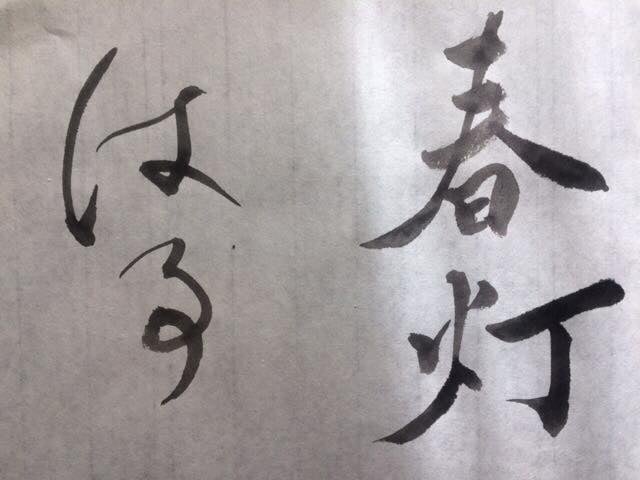 春灯
はる